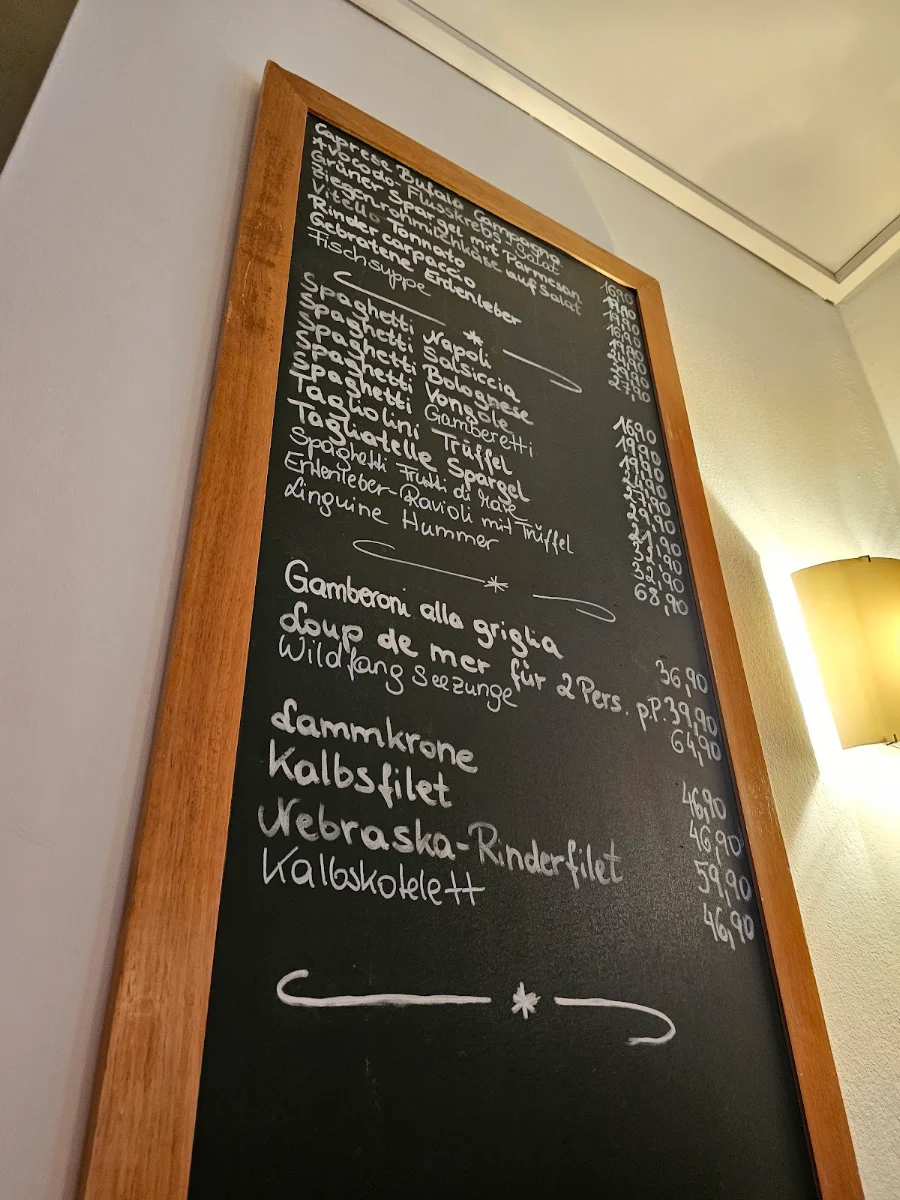 Caprese Bufala Campagna 16,90
Avocado-Flusskrebs-Salat
Grüner Spargel mit Parmesan
Ziegenrohmilchkäse auf Salat
Vitello Tonnato
Rindercarpaccio
Gebratene Entenleber
Fischsuppe 27,90
Spaghetti Napoli 16,90
Spaghetti Salsiccia 19,90
Spaghetti Bolognese 19,90
Spaghetti Vongole
Spaghetti Gamberetti
Tagliolini Trüffel 29,90
Tagliatelle Spargel
Spaghetti Frutti di Mare 32,90
Entenleber-Ravioli mit Trüffel 32,90
Linguine Hummer 68,90
Gamberoni alla griglia 36,90
Loup de mer für 2 Pers. p.P. 39,90
Wildfang Seezunge 64,90
Lammkrone 46,90
Kalbsfilet 46,90
Nebraska-Rinderfilet 59,90
Kalbskotelett 46,90